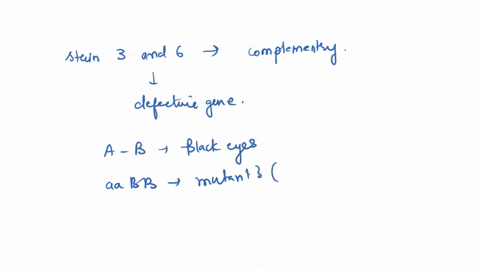 stain 3 and 6 → complementry.
↓
defective gene.
A - B → Black eyes
aa BB → mutant 3 (